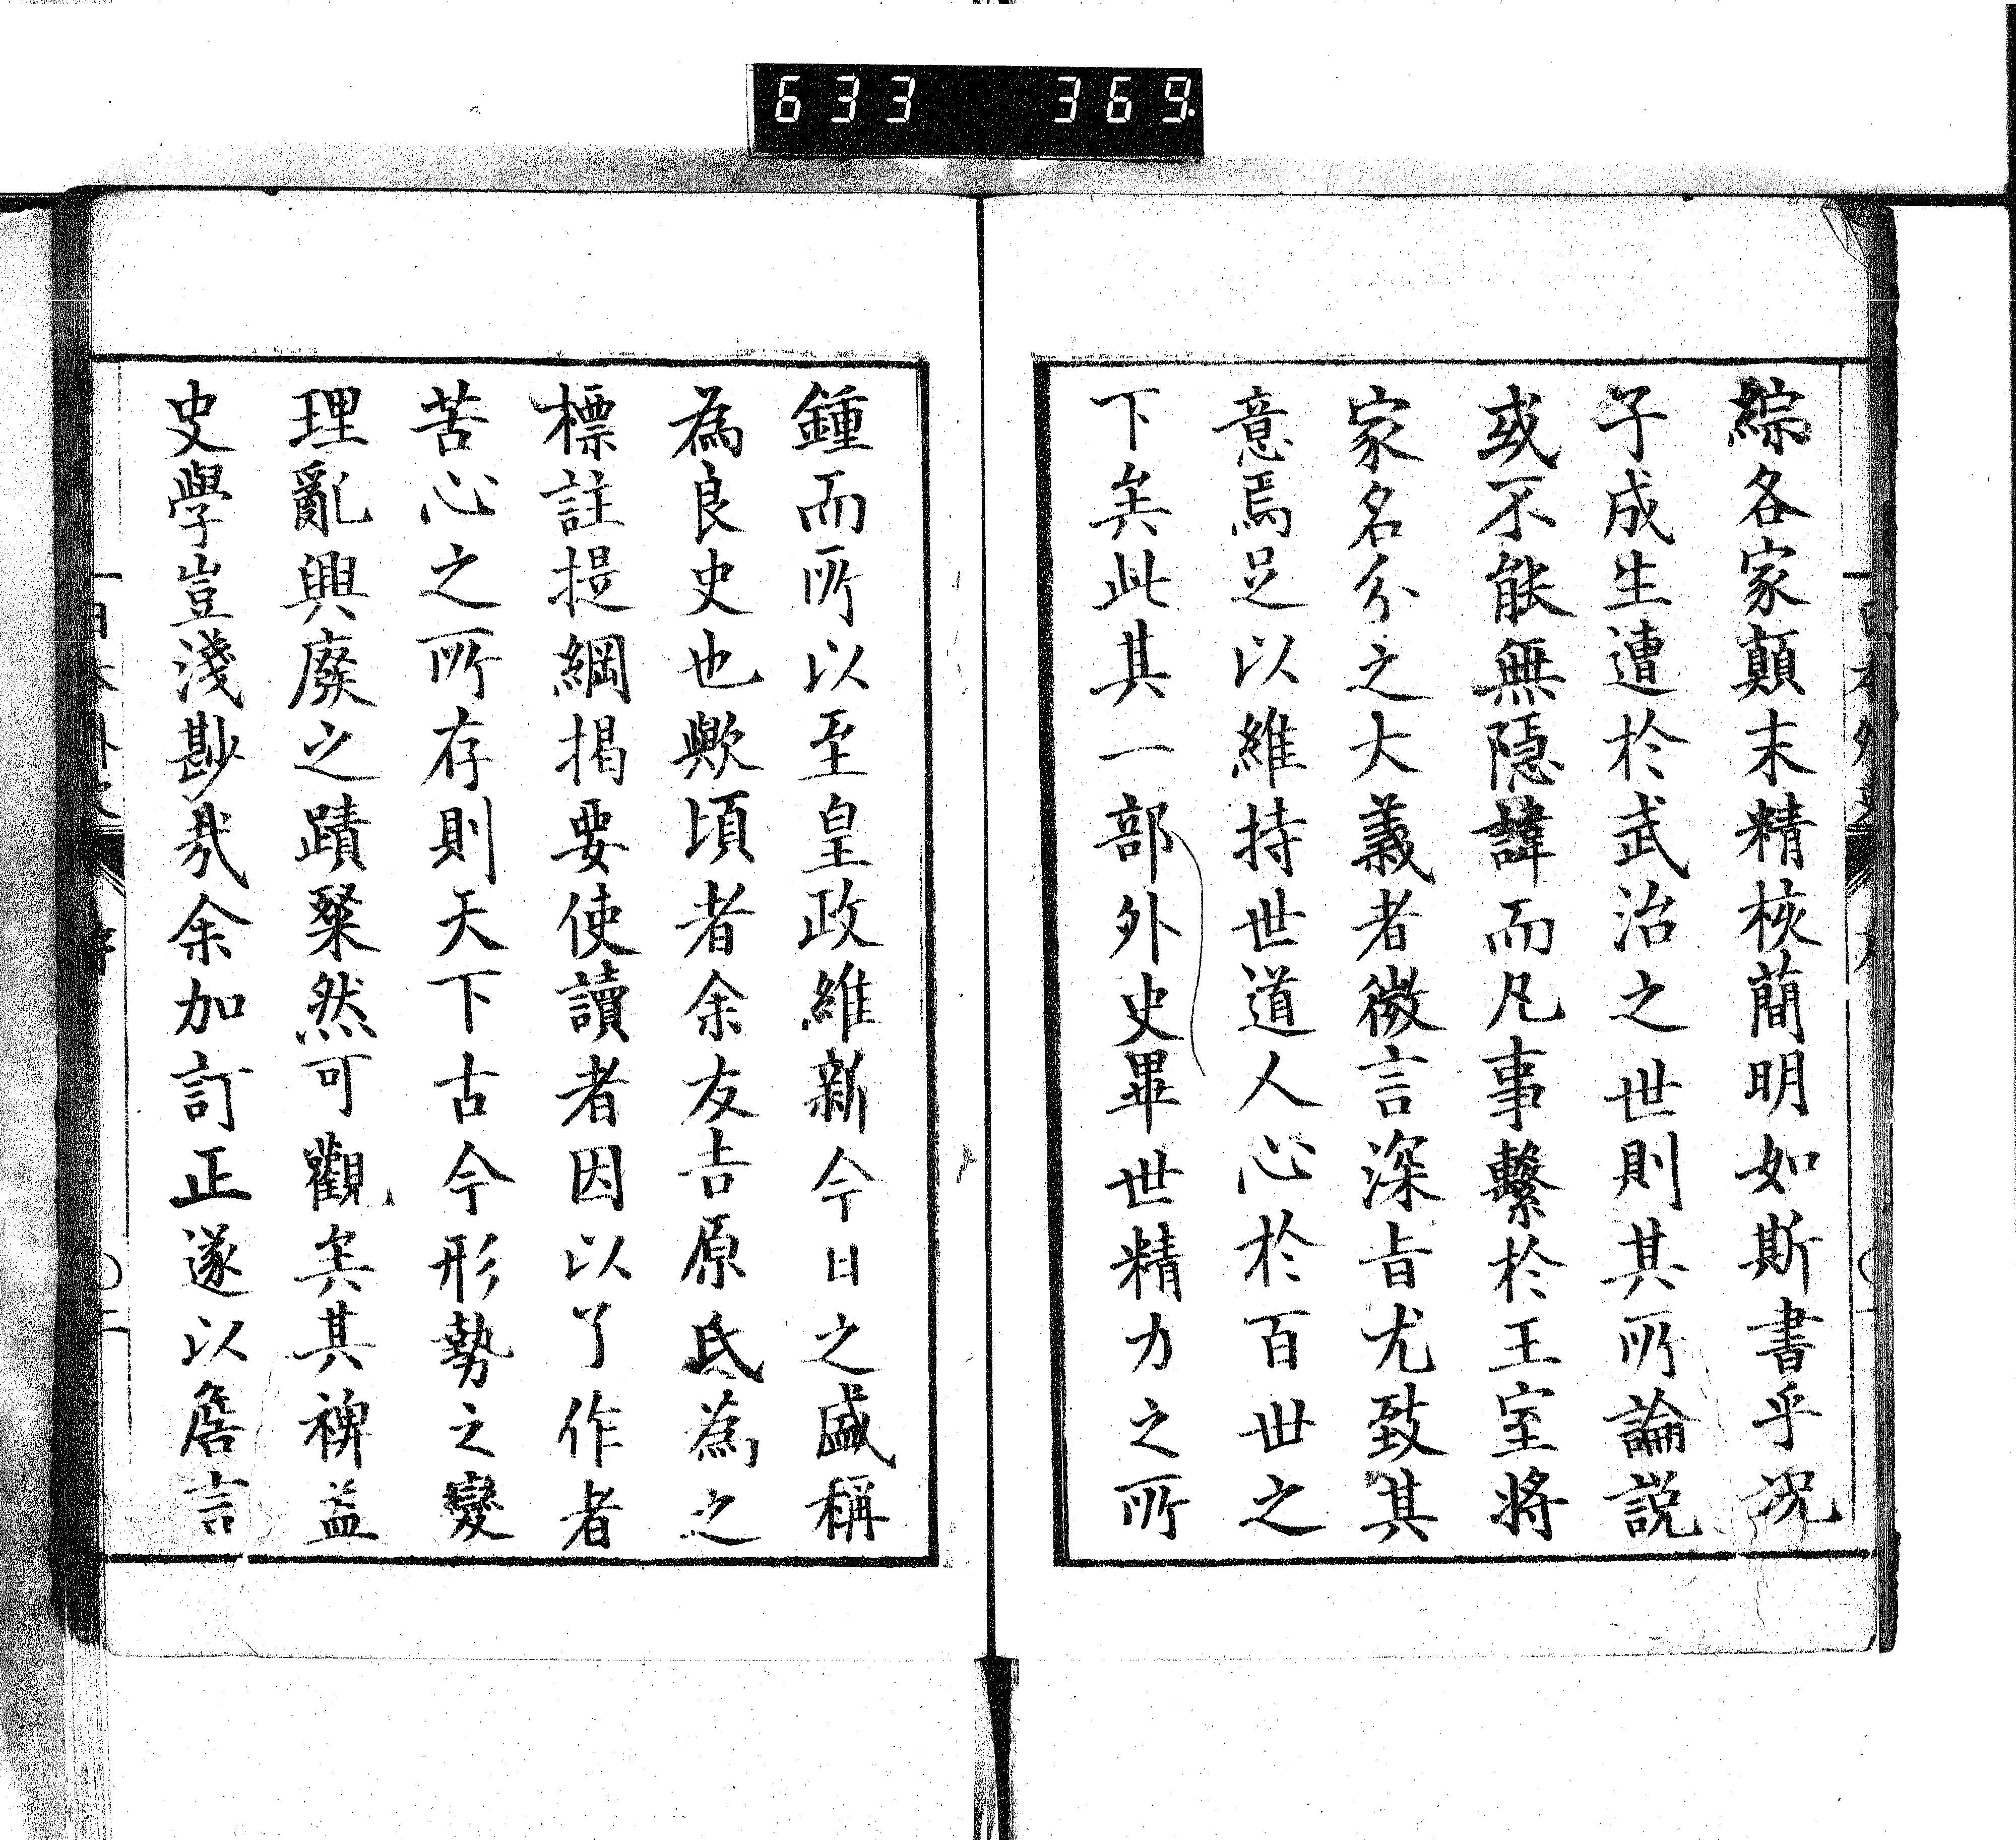 633 369
綜各家顛末精核簡明如斯書乎況
子成生遭於武治之世則其所論説
或不能無隱諱而凡事繫於王室將
家名分之大義者微言深旨尤致其
意焉足以維持世道人心於百世之
下矣此其一部外史畢世精力之所
鍾而所以至皇政維新今日之盛稱
為良史也歟頃者余友吉原氏為之
標註提綱揭要使讀者因以了作者
苦心之所存則天下古今形勢之變
理亂興廢之蹟粲然可觀矣其裨益
史學豈淺尠哉余加訂正遂以詹言